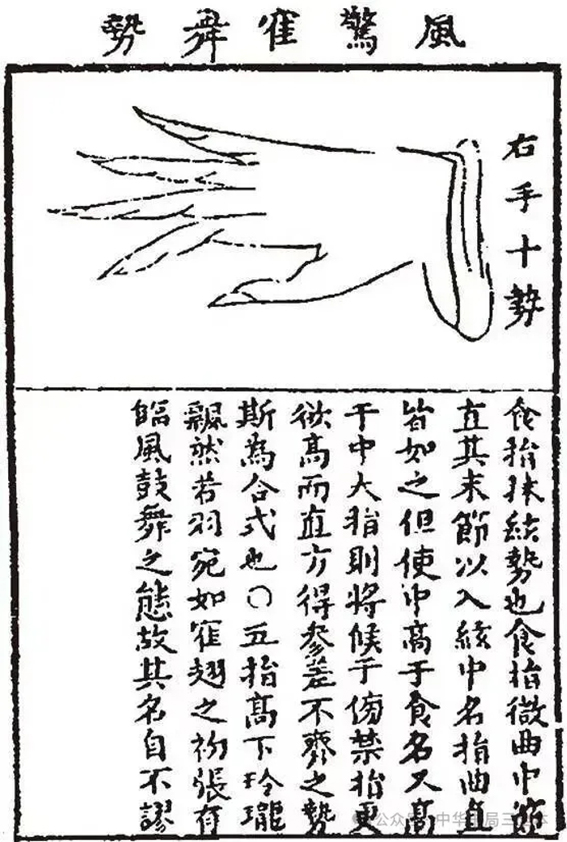 風驚寉舞勢
右手十勢
食指抹絃勢也食指微曲中節
直其末節以入絃中名指曲直
皆如之但使中高于食名又高
于中大指則將候于傍禁指更
欲高而直方得參差不齊之勢
斯為合式也〇五指高下玲瓏
飄然若羽宛如寉翅之初張有
臨風鼓舞之態故其名自不謬